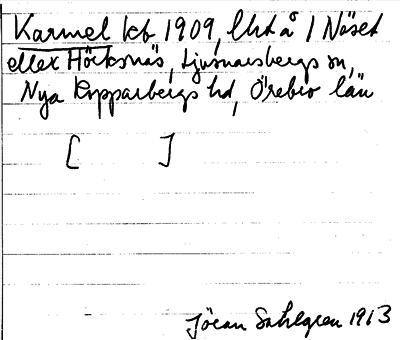 Karmel kb 1909, lht å 1 Näset
eller Hörksnäs, Ljusnarsbergs sn,
Nya Kopparbergs hd, Örebro län
[ ]
Jöran Sahlgren 1913